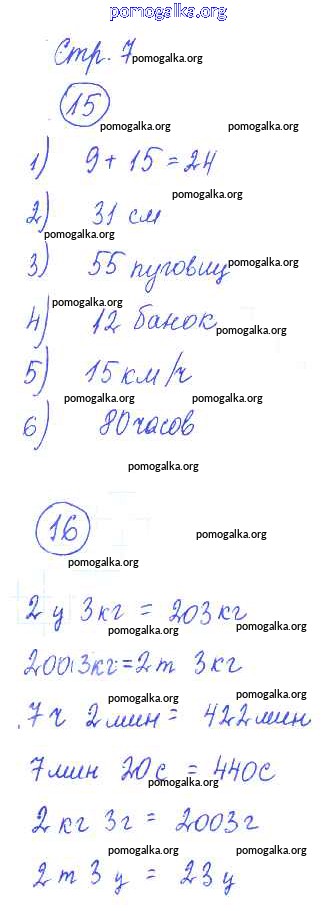 pomogalka.org
Стр. 7 pomogalka.org
15
pomogalka.org pomogalka.org
1) 9 + 15 = 24
pomogalka.org
2) 31 см
pomogalka.org
3) 55 пуговиц pomogalka.org
pomogalka.org
4) 12 банок pomogalka.org
5) 15 км/ч
pomogalka.org pomogalka.org
6) 80 часов
pomogalka.org
16
pomogalka.org
pomogalka.org
2 ц 3 кг = 203 кг
pomogalka.org pomogalka.org
2003 кг = 2 т 3 кг
pomogalka.org pomogalka.org
7 ч 2 мин = 422 мин
pomogalka.org
7 мин 20 с = 440 с
pomogalka.org
2 кг 3 г = 2003 г
pomogalka.org pomogalka.org
2 т 3 ц = 23 ц
pomogalka.org pomogalka.org